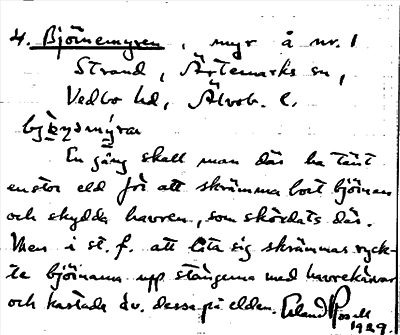 4. Björnemyren, myr å nr. 1
Strand, Ärtemarks sn,
Vedbo hd, Älvsb. l.
En gång skall man där ha tänt
en stor eld för att skrämma bort björnen
och skydda havren, som skördats där.
Men i st. f. att låta sig skrämmas ryck-
te björnarna upp stängerna med havrekärvar
och kastade dessa på elden. Erland Rosell
1929.